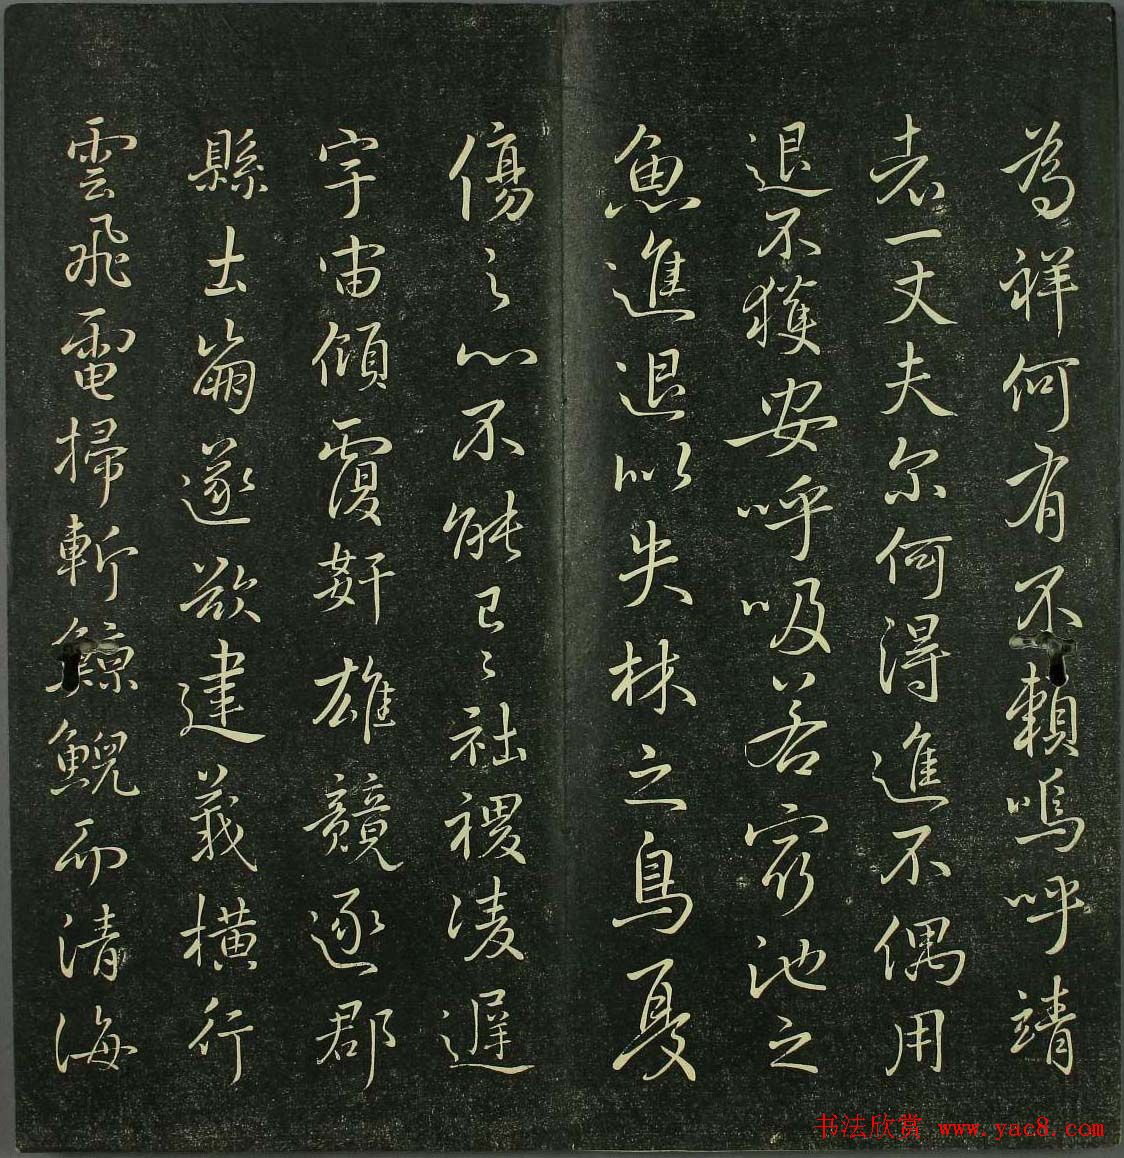 為祥何有不賴嗚呼靖
者一丈夫尔何得進不偶用
退不獲安呼吸若窮池之
魚進退以失林之鳥憂
傷之心不能已〻社稷凌遲
宇宙傾覆姧雄競逐郡
縣土崩遂欲建義橫行
雲飛電掃斬鯨鯢而清海
书法欣赏 www.yac8.com